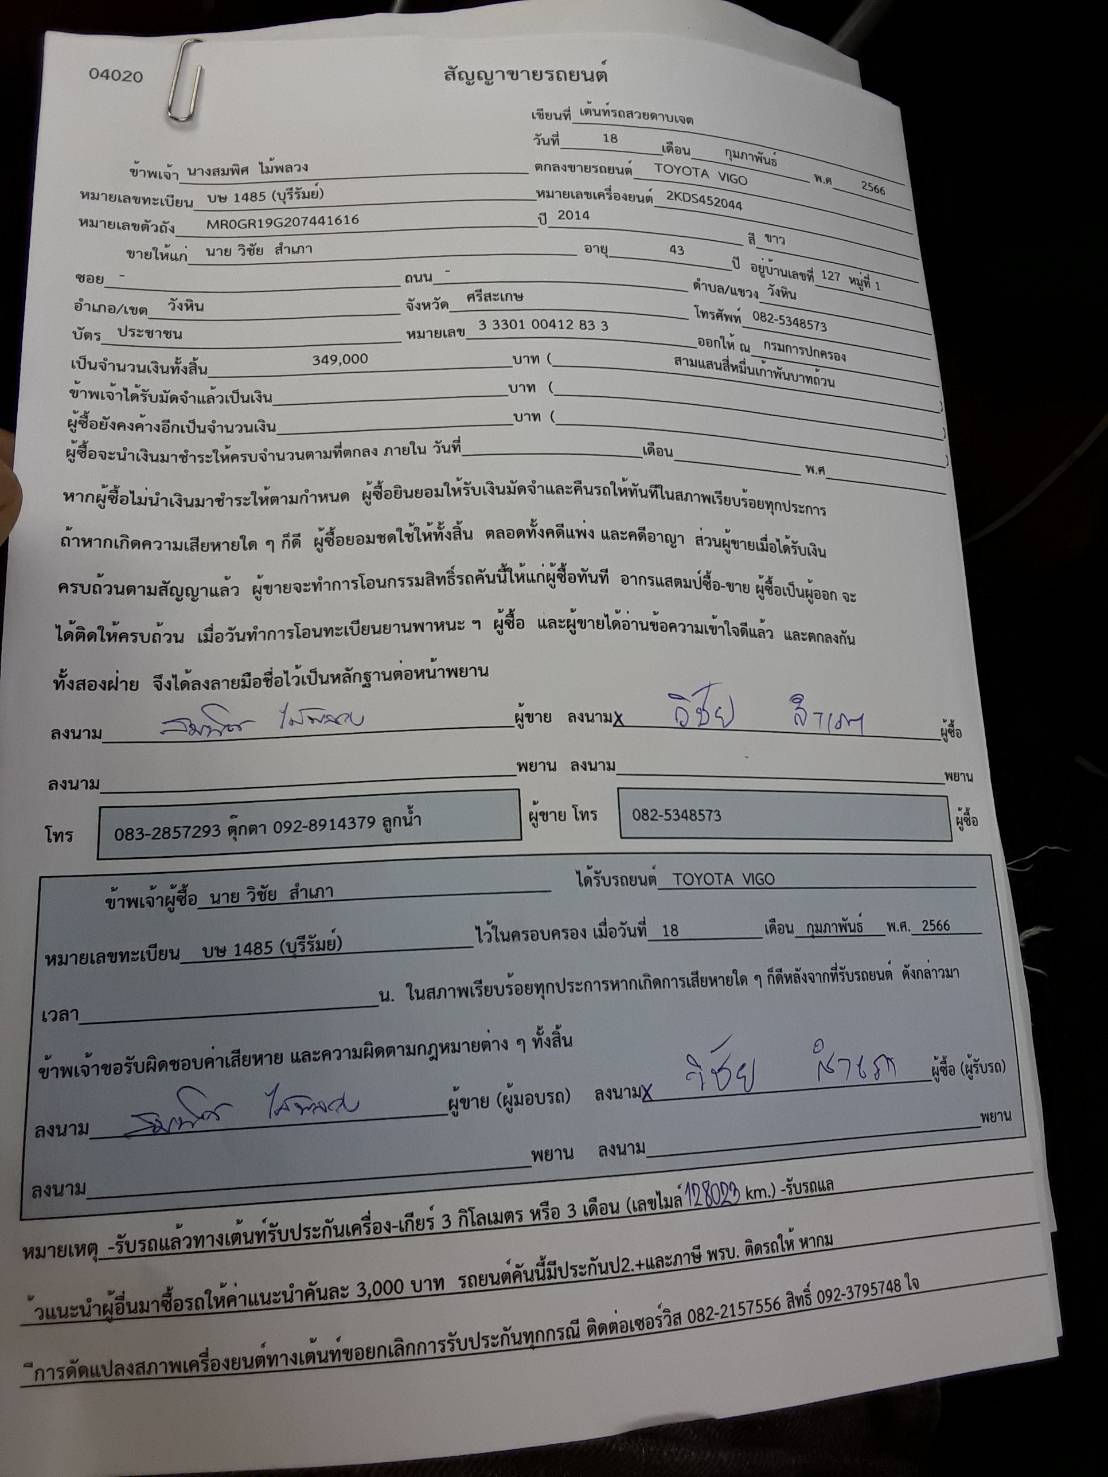 04020
สัญญาขายรถยนต์
เขียนที่ เต้นท์รถสวยดาบเจต
วันที่ 18 เดือน กุมภาพันธ์ พ.ศ 2566
ข้าพเจ้า นางสมพิศ ไม้พลวง ตกลงขายรถยนต์ TOYOTA VIGO
หมายเลขทะเบียน บษ 1485 (บุรีรัมย์) หมายเลขเครื่องยนต์ 2KDS452044
หมายเลขตัวถัง MR0GR19G207441616 ปี 2014 สี ขาว
ขายให้แก่ นาย วิชัย สำเภา อายุ 43 ปี อยู่บ้านเลขที่ 127 หมู่ที่ 1
ซอย - ถนน - ตำบล/แขวง วังหิน
อำเภอ/เขต วังหิน จังหวัด ศรีสะเกษ โทรศัพท์ 082-5348573
บัตร ประชาชน หมายเลข 3 3301 00412 83 3 ออกให้ ณ กรมการปกครอง
เป็นจำนวนเงินทั้งสิ้น 349,000 บาท ( สามแสนสี่หมื่นเก้าพันบาทถ้วน )
ข้าพเจ้าได้รับมัดจำแล้วเป็นเงิน บาท ( )
ผู้ซื้อยังคงค้างอีกเป็นจำนวนเงิน บาท ( )
ผู้ซื้อจะนำเงินมาชำระให้ครบจำนวนตามที่ตกลง ภายใน วันที่ เดือน พ.ศ
หากผู้ซื้อไม่นำเงินมาชำระให้ตามกำหนด ผู้ซื้อยินยอมให้รับเงินมัดจำและคืนรถให้ทันทีในสภาพเรียบร้อยทุกประการ
ถ้าหากเกิดความเสียหายใด ๆ ก็ดี ผู้ซื้อยอมชดใช้ให้ทั้งสิ้น ตลอดทั้งคดีแพ่ง และคดีอาญา ส่วนผู้ขายเมื่อได้รับเงิน
ครบถ้วนตามสัญญาแล้ว ผู้ขายจะทำการโอนกรรมสิทธิ์รถคันนี้ให้แก่ผู้ซื้อทันที อากรแสตมป์ซื้อ-ขาย ผู้ซื้อเป็นผู้ออก จะ
ได้ติดให้ครบถ้วน เมื่อวันทำการโอนทะเบียนยานพาหนะ ฯ ผู้ซื้อ และผู้ขายได้อ่านข้อความเข้าใจดีแล้ว และตกลงกัน
ทั้งสองฝ่าย จึงได้ลงลายมือชื่อไว้เป็นหลักฐานต่อหน้าพยาน
ลงนาม สมพิศ ไม้พลวง ผู้ขาย ลงนาม x วิชัย สำเภา ผู้ซื้อ
ลงนาม พยาน ลงนาม พยาน
โทร 083-2857293 ตุ๊กตา 092-8914379 ลูกน้ำ ผู้ขาย โทร 082-5348573 ผู้ซื้อ
ข้าพเจ้าผู้ซื้อ นาย วิชัย สำเภา ได้รับรถยนต์ TOYOTA VIGO
หมายเลขทะเบียน บษ 1485 (บุรีรัมย์) ไว้ในครอบครอง เมื่อวันที่ 18 เดือน กุมภาพันธ์ พ.ศ. 2566
เวลา น. ในสภาพเรียบร้อยทุกประการหากเกิดการเสียหายใด ๆ ก็ดีหลังจากที่รับรถยนต์ ดังกล่าวมา
ข้าพเจ้าขอรับผิดชอบค่าเสียหาย และความผิดตามกฎหมายต่าง ๆ ทั้งสิ้น
ลงนาม สมพิศ ไม้พลวง ผู้ขาย (ผู้มอบรถ) ลงนาม x วิชัย สำเภา ผู้ซื้อ (ผู้รับรถ)
ลงนาม พยาน ลงนาม พยาน
หมายเหตุ -รับรถแล้วทางเต้นท์รับประกันเครื่อง-เกียร์ 3 กิโลเมตร หรือ 3 เดือน (เลขไมล์ 128023 km.) -รับรถแล
้วแนะนำผู้อื่นมาซื้อรถให้ค่าแนะนำคันละ 3,000 บาท รถยนต์คันนี้มีประกันป2.+และภาษี พรบ. ติดรถให้ หากม
ีการดัดแปลงสภาพเครื่องยนต์ทางเต้นท์ขอยกเลิกการรับประกันทุกกรณี ติดต่อเซอร์วิส 082-2157556 สิทธิ์ 092-3795748 ใจ